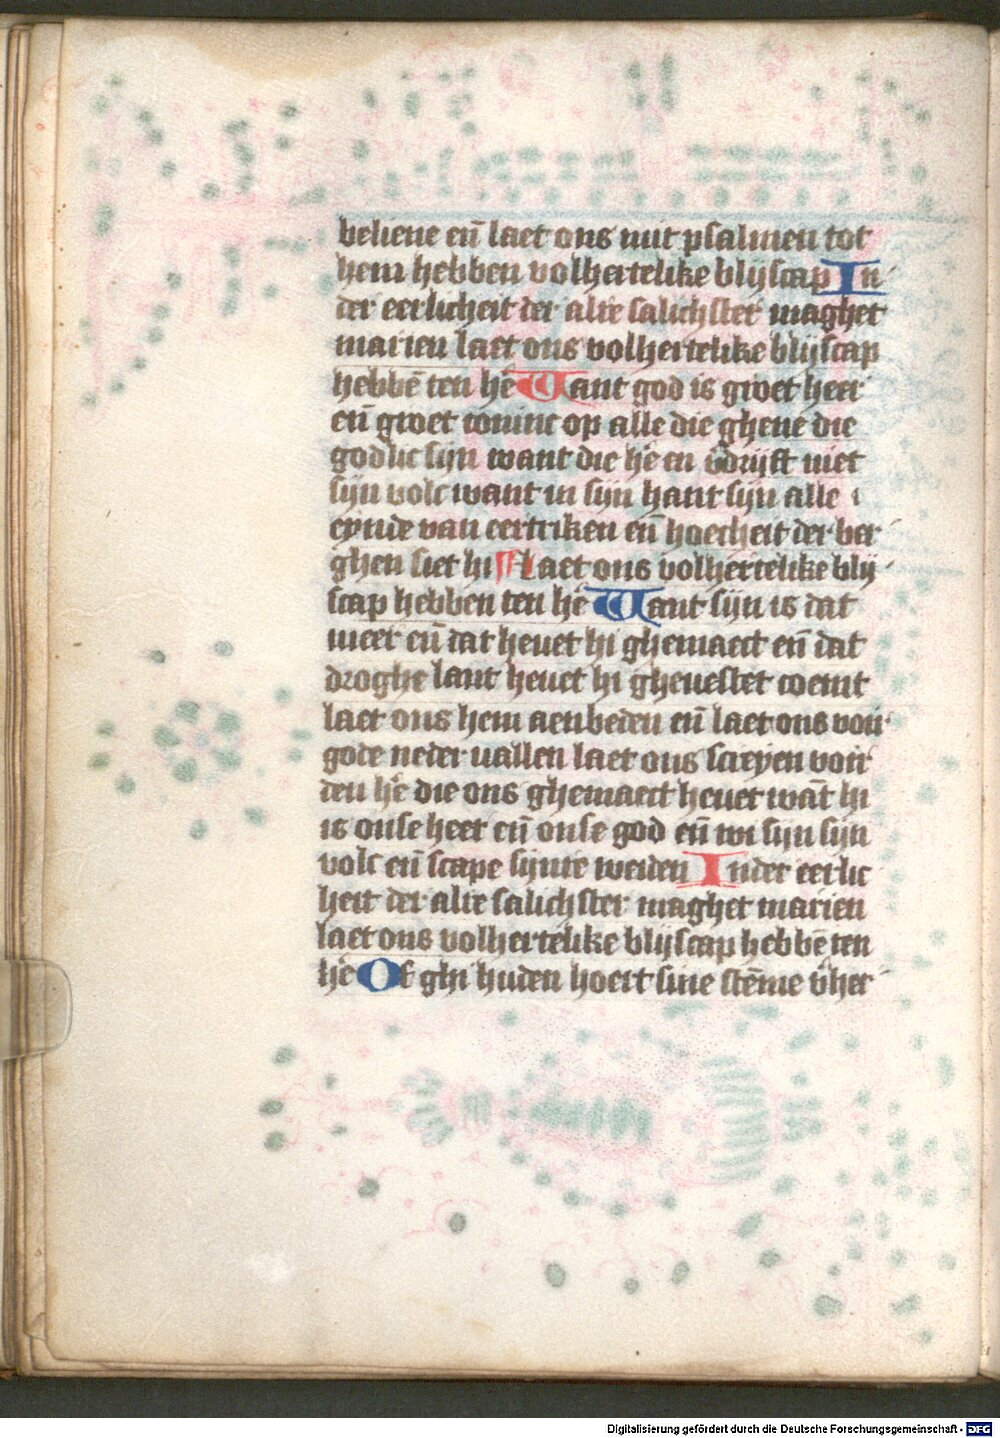 beliene en̄ laet ons mit psalmen tot
hem hebben volhertelike blijscap In
der eerlicheit der alre salichster maghet
marien laet ons volhertelike blijscap
hebbē ten hē Want god is groet heer
en̄ groet coninc op alle die ghene die
godlic sijn want die hē en v̄drijft niet
sijn volc want in sijn hant sijn alle
eynde van eertriken en̄ hoecheit der ber
ghen siet hi Laet ons volhertelike blij
scap hebben ten hē Want sijn is dat
meer en̄ dat heuet hi ghemaect en̄ dat
droghe lant heuet hi gheuestet coemt
laet ons hem aenbeden en̄ laet ons voir
gode neder uallen laet ons screyen voir
den hē die ons ghemaect heuet wāt hi
is onse heer en̄ onse god en̄ wi sijn sijn
volc en̄ scape sijnre weiden In der eerlic
heit der alre salichster maghet marien
laet ons volhertelike blijscap hebbē ten
hē Of ghi huden hoert sine stēme v̄her
Digitalisierung gefördert durch die Deutsche Forschungsgemeinschaft - DFG